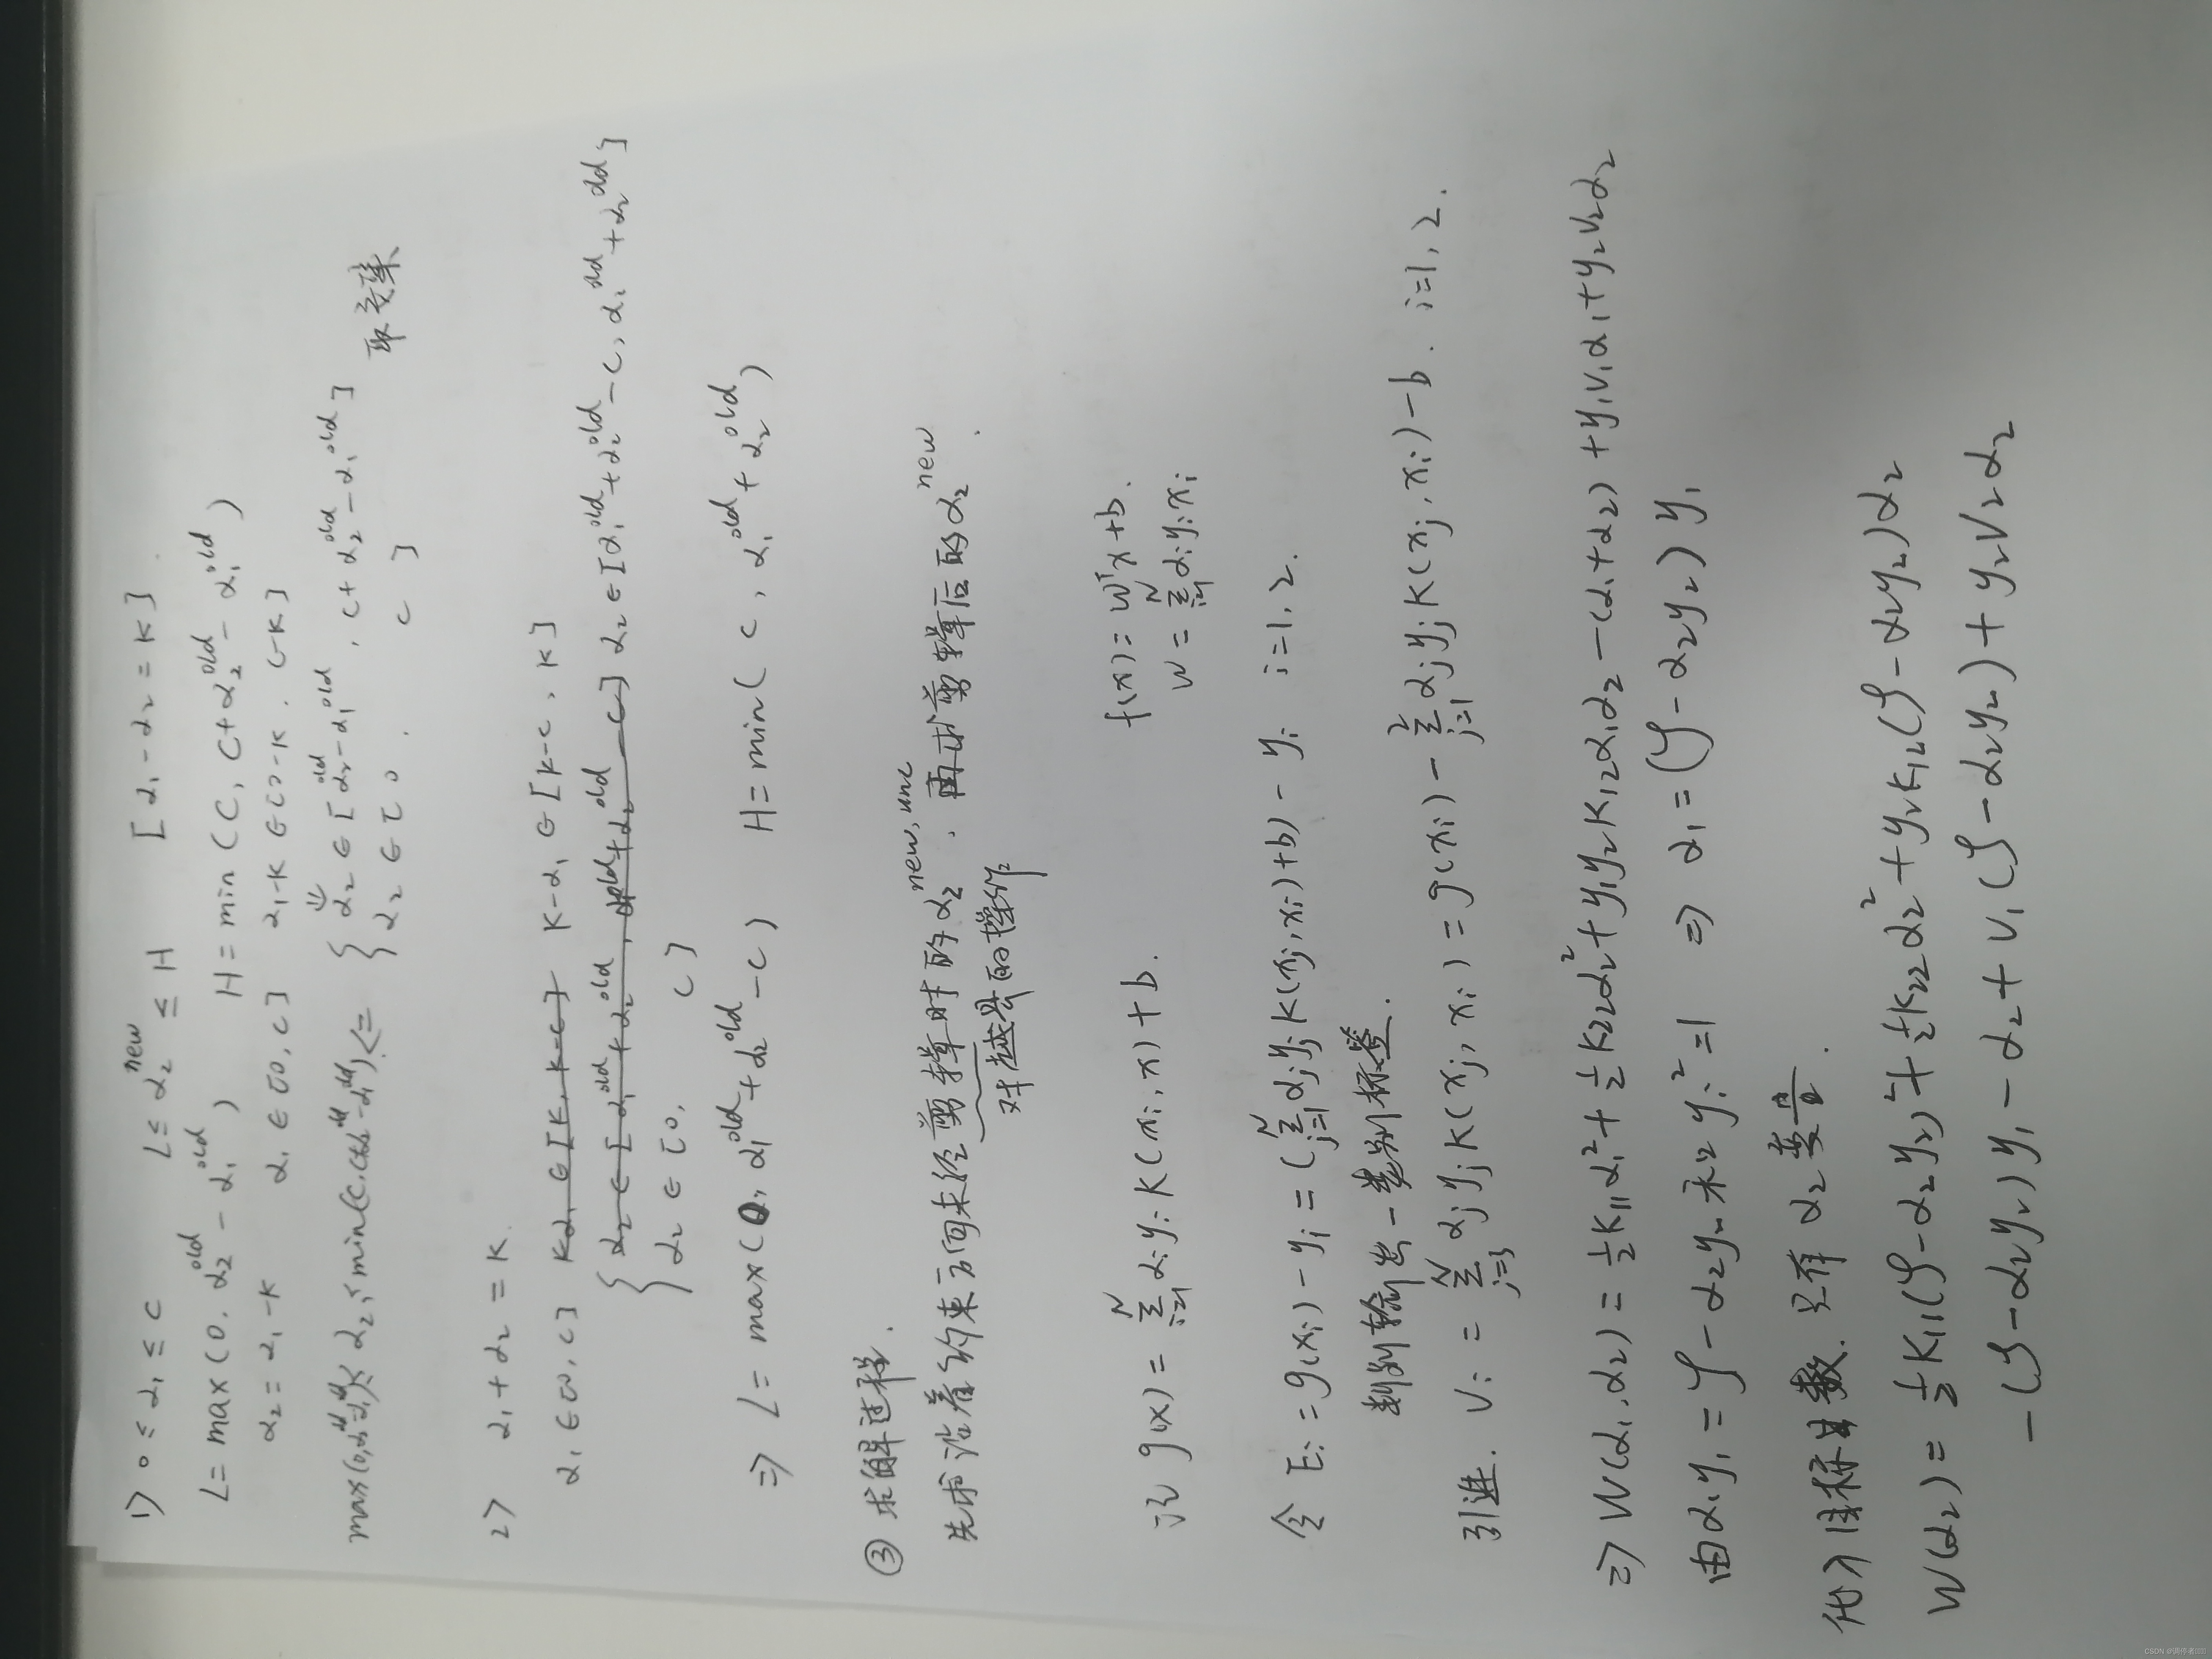 1) 0 ≤ α₁ ≤ C L ≤ α₂^new ≤ H [α₁ - α₂ = K]
L = max(0, α₂^old - α₁^old) H = min(C, C + α₂^old - α₁^old)
α₂ = α₁ - K α₁ ∈ [0, C] α₁ - K ∈ [0 - K, C - K]
⇓
max(0, α₂^old - α₁^old) ≤ α₂ ≤ min(C, C + α₂^old - α₁^old) ⇐ { α₂ ∈ [α₂^old - α₁^old, C + α₂^old - α₁^old]
α₂ ∈ [0, C] 取交集
2) α₁ + α₂ = K
α₁ ∈ [0, C] K - α₁ ∈ [K - C, K]
{ α₂ ∈ [α₁^old + α₂^old - C, α₁^old + α₂^old]
α₂ ∈ [0, C]
⇒ L = max(0, α₁^old + α₂^old - C) H = min(C, α₁^old + α₂^old)
③ 求解过程.
先求沿着约束方向未经剪辑时的 α₂^new,unc, 再求剪辑后的 α₂^new.
对越界的操作
f(x) = wᵀx + b.
记 g(x) = Σ_{i=1}^N αᵢyᵢK(xᵢ, x) + b. w = Σ_{i=1}^N αᵢyᵢxᵢ
令 Eᵢ = g(xᵢ) - yᵢ = (Σ_{j=1}^N αⱼyⱼK(xⱼ, xᵢ) + b) - yᵢ i=1, 2.
判别输出 - 类别标签.
引进. vᵢ = Σ_{j=3}^N αⱼyⱼK(xⱼ, xᵢ) = g(xᵢ) - Σ_{j=1}^2 αⱼyⱼK(xⱼ, xᵢ) - b. i=1, 2.
⇒ W(α₁, α₂) = ½K₁₁α₁² + ½K₂₂α₂² + y₁y₂K₁₂α₁α₂ - (α₁ + α₂) + y₁v₁α₁ + y₂v₂α₂
由 α₁y₁ = ζ - α₂y₂ 和 yᵢ² = 1 ⇒ α₁ = (ζ - α₂y₂)y₁
代入目标函数. 只有 α₂ 变量.
W(α₂) = ½K₁₁(ζ - α₂y₂)² + ½K₂₂α₂² + y₂K₁₂(ζ - α₂y₂)α₂
- (ζ - α₂y₂)y₁ - α₂ + v₁(ζ - α₂y₂) + y₂v₂α₂